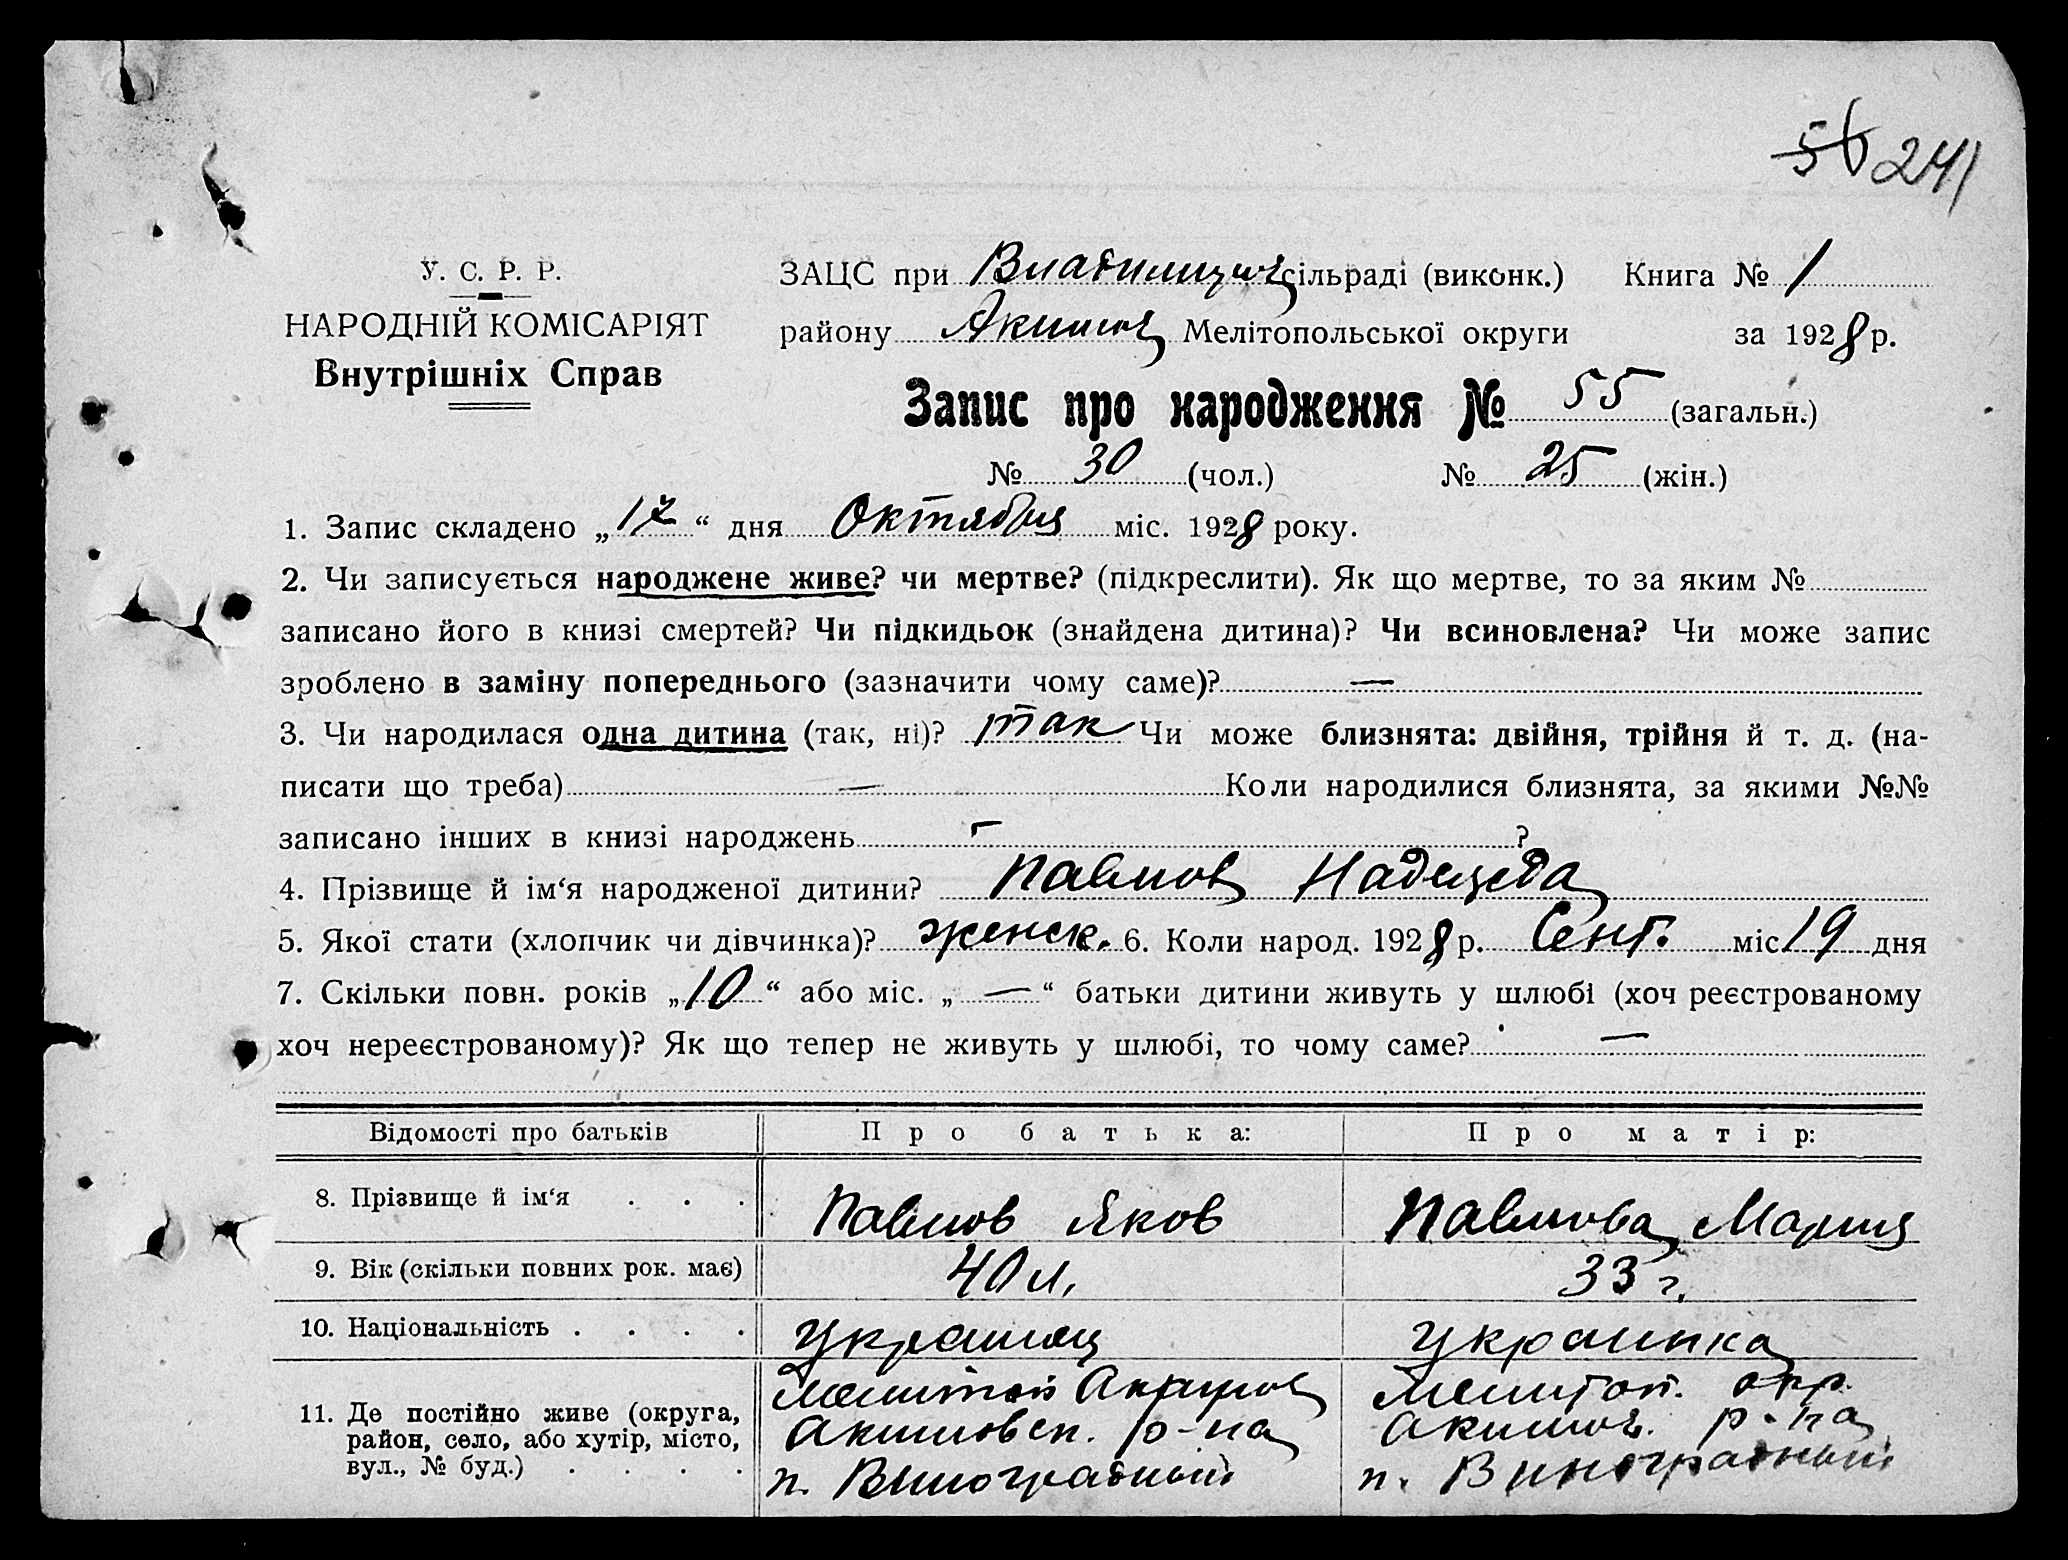 56 241
У. С. Р. Р.
НАРОДНІЙ КОМІСАРІЯТ
Внутрішніх Справ
ЗАЦС при сільраді (виконк.) Книга № 1
району Акимов Мелітопольської округи за 1928 р.
Запис про народження № 55 (загальн.)
№ 30 (чол.) № 25 (жін.)
1. Запис складено „17“ дня Октября міс. 1928 року.
2. Чи записується народжене живе? чи мертве? (підкреслити). Як що мертве, то за яким №
записано його в книзі смертей? Чи підкидьок (знайдена дитина)? Чи всиновлена? Чи може запис
зроблено в заміну попереднього (зазначити чому саме)? —
3. Чи народилася одна дитина (так, ні)? так Чи може близнята: двійня, трійня й т. д. (на-
писати що треба) — Коли народилися близнята, за якими №№
записано інших в книзі народжень — ?
4. Прізвище й ім‘я народженої дитини? Надежда
5. Якої стати (хлопчик чи дівчинка)? женск. 6. Коли народ. 1928 р. Сент. міс 19 дня
7. Скільки повн. років „10“ або міс. „—“ батьки дитини живуть у шлюбі (хоч реєстрованому
хоч нереєстрованому)? Як що тепер не живуть у шлюбі, то чому саме? —
Відомості про батьків Про батька: Про матір:
8. Прізвище й ім‘я . . . Павлов Яков Павлова Мария
9. Вік (скільки повних рок. має) 40 л. 33 г.
10. Національність . . . . Украинец Украинка
11. Де постійно живе (округа, район, село, або хутір, місто, вул., № буд.) . . . .
Мелитоп
Акимовск. р-на
п. Виноградный
Мелитоп. окр.
Акимов. р-на
п. Виноградный